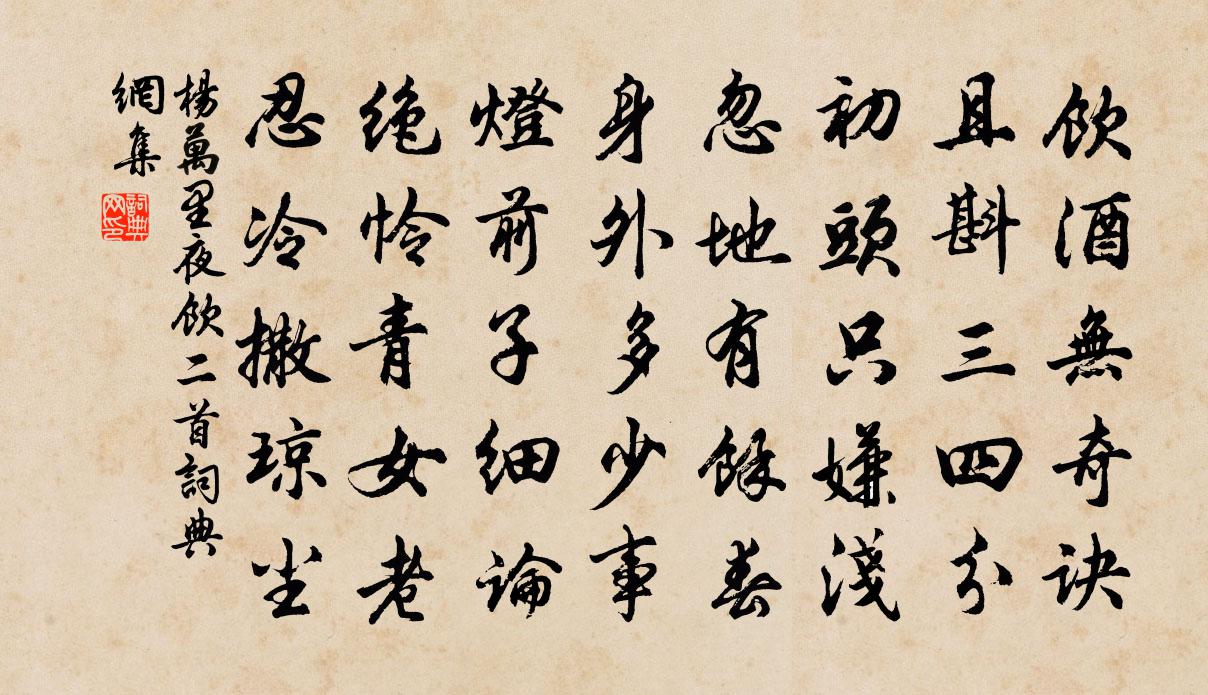 飲酒無奇訣
且斟三四分
初頭只嫌淺
忽地有餘春
身外多少事
燈前子細論
絶怜青女老
忍冷撒琼尘
楊萬里夜飲二首詞典
網集
詞典
网印